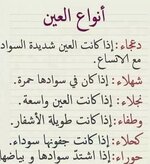 أنواع العين
دعجاء: إذا كانت العين شديدة السواد
مع الاتساع.
شهلاء: إذا كان في سوادها حمرة.
نجلاء: إذا كانت العين واسعة.
وطفاء: إذا كانت طويلة الأشفار.
كحلاء: إذا كانت جفونها سوداء.
حوراء: إذا اشتد سوادها و بياضها